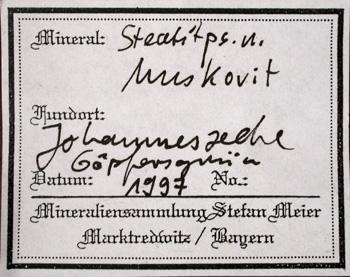 Mineral: Steatit ps. n.
Muskovit
Fundort:
Johanneszeche
Göpfersgrün
Datum: 1997 No.:
Mineraliensammlung Stefan Meier
Marktredwitz / Bayern